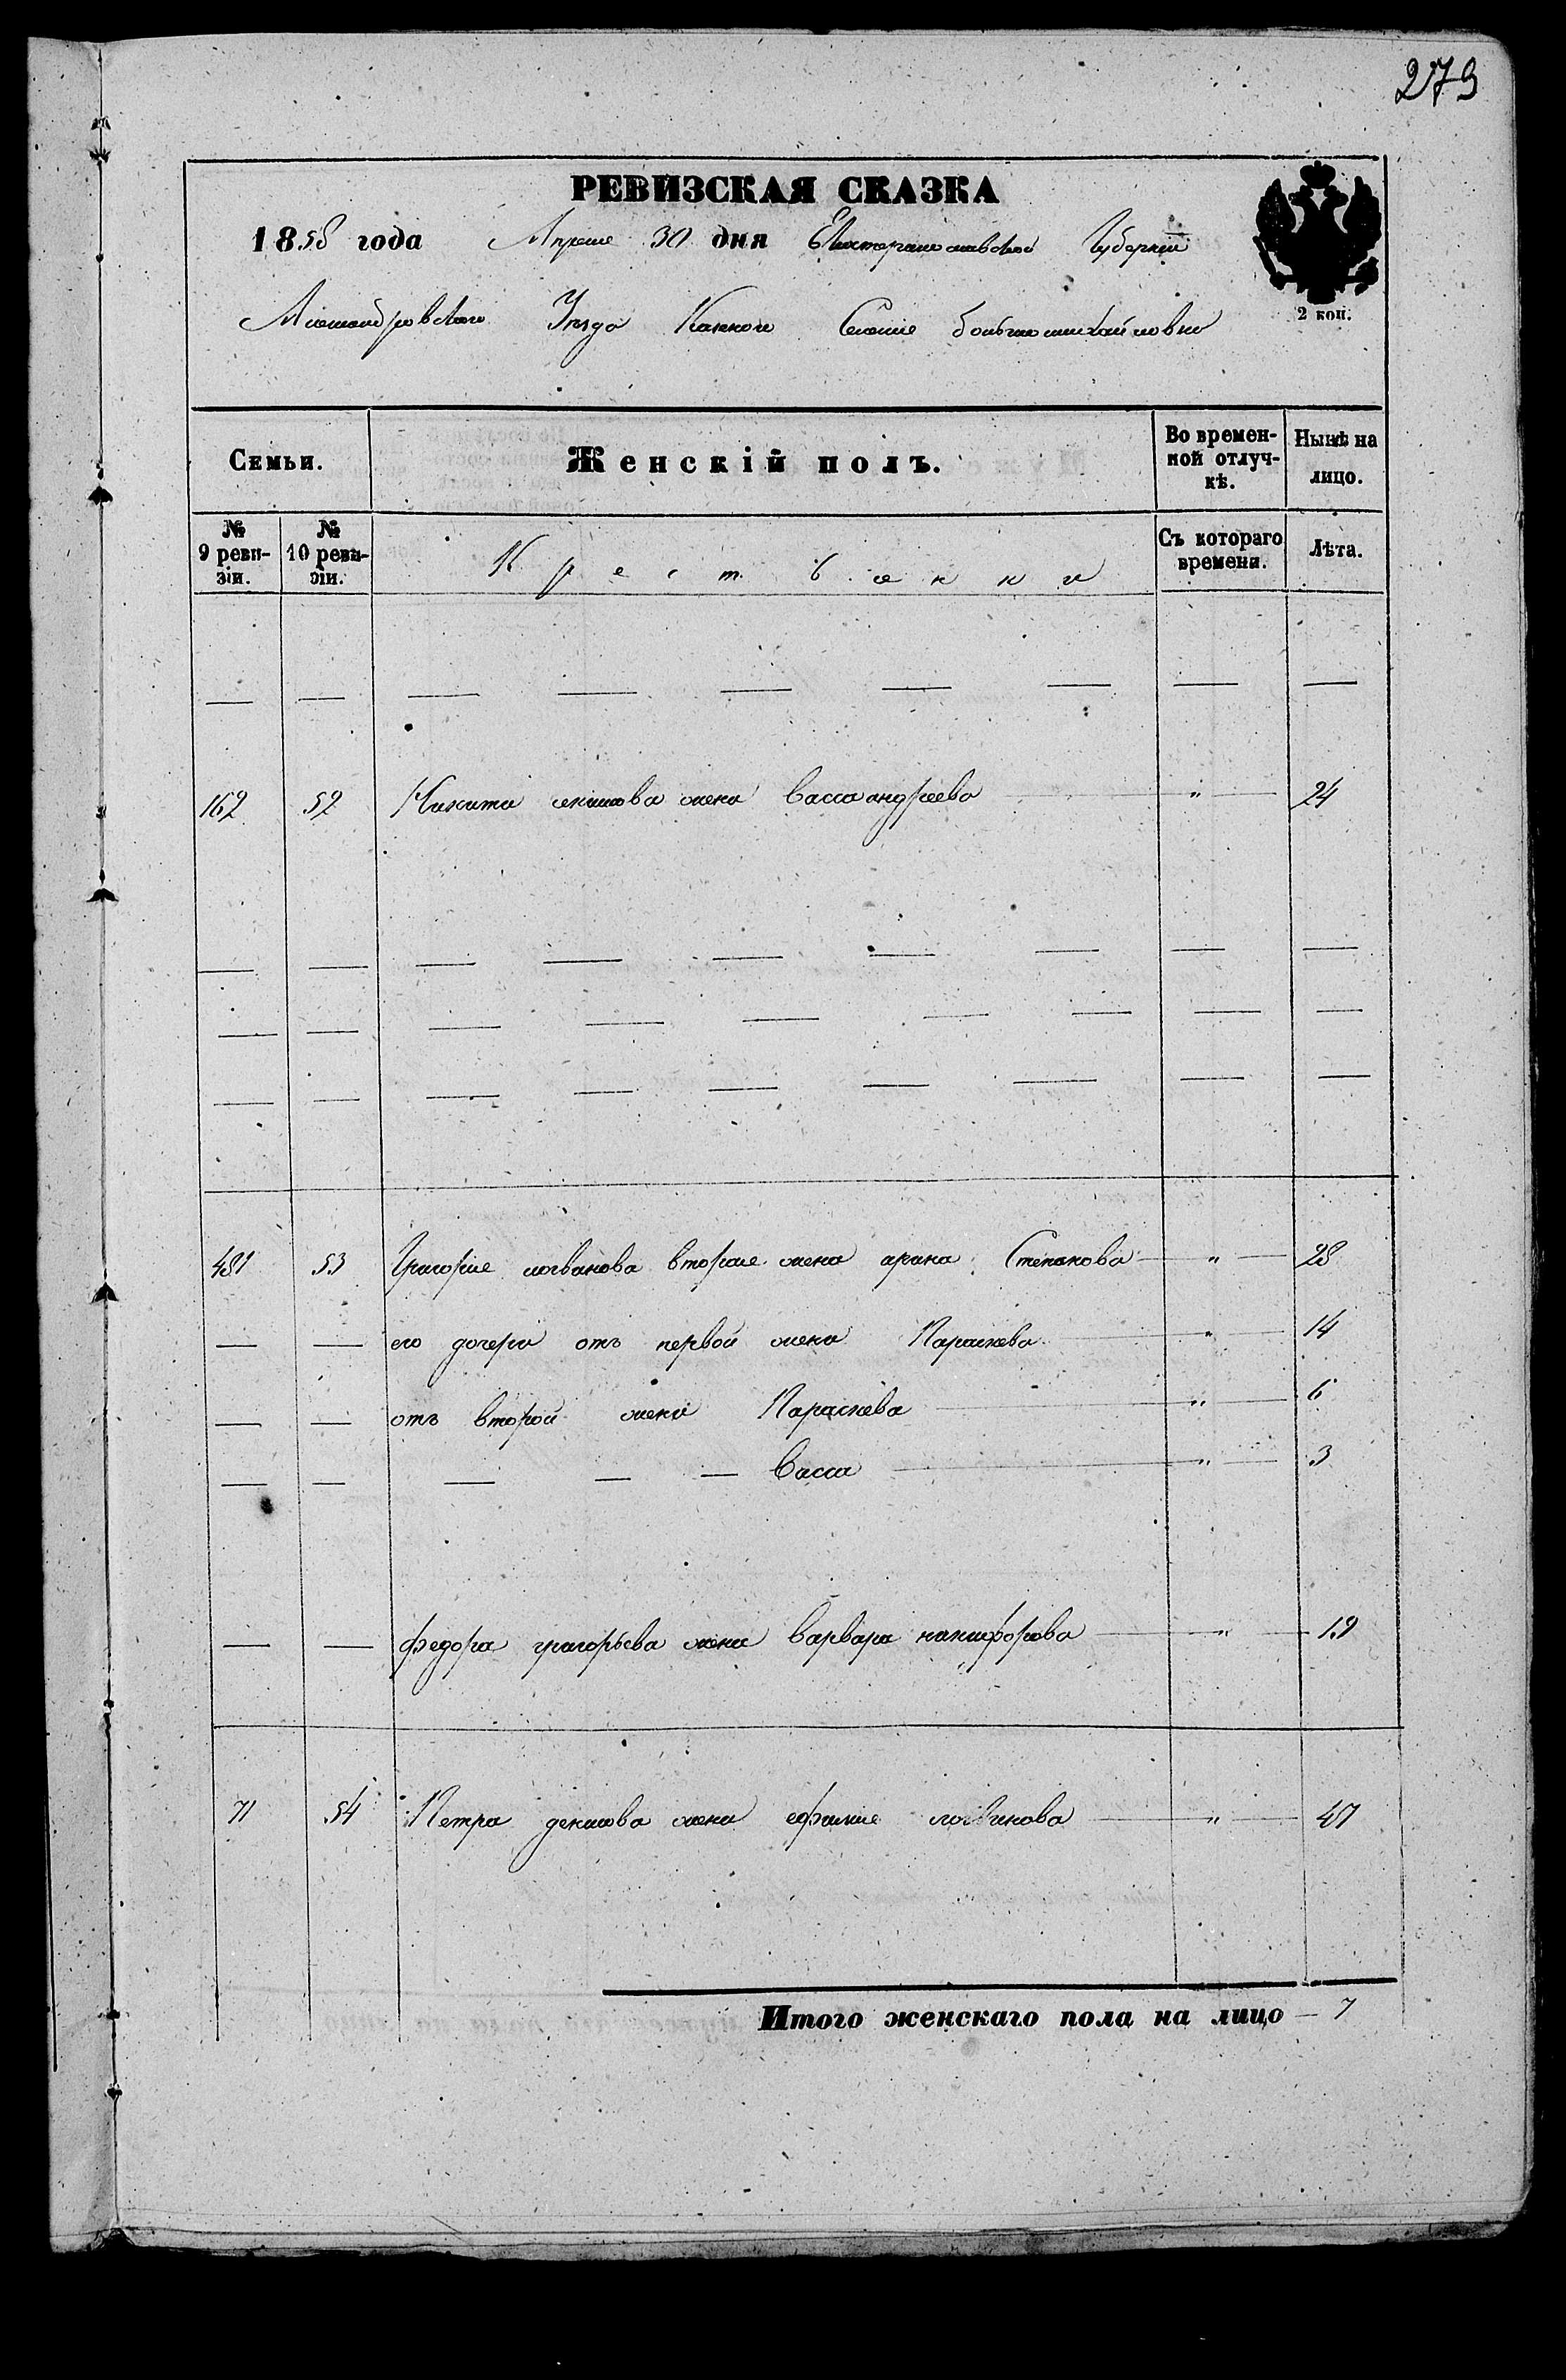 273
РЕВИЗСКАЯ СКАЗКА
1858 года Апреля 30 дня Екатеринославской Губернии
Александровского Уезда Казенного Селения большомихайловки
2 коп.
Семьи. Женскій полъ. Во времен-ной отлуч-кѣ. Нынѣ на лицо.
№ 9 реви-зіи. № 10 реви-зіи. Крестьянки Съ котораго времени. Лѣта.
— — — — — — — — —
162 52 Никиты жена Васса андреева — " — 24
— — — — — — — — —
— — — — — — — — —
— — — — — — — — —
481 53 Григорие логвинова вторая жена арина Степанова — " — 28
— — его дочери отъ первой жены Параскева — " — 14
— — отъ второй жены Параскева — " — 6
— — — — — Васса — " — 3
— — федора григорьева жена варвара никифорова — " — 19
71 54 Петра денисова жена ефимие логвинова — " — 47
Итого женскаго пола на лицо — 7